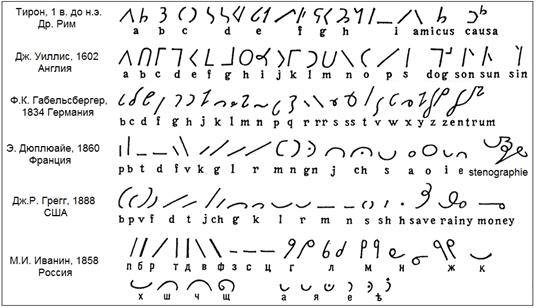 Тирон, 1 в. до н.э.
Др. Рим
a b c d e f g h i amicus causa
Дж. Уиллис, 1602
Англия
a b c d e f g h i j k l m n o p s dog son sun sin
Ф.К. Габельсбергер,
1834 Германия
b c d f g h j k l m n p q r r s ss t v w x y z zentrum
Э. Дюплюайе, 1860
Франция
p b t d f v k g l r m n g n j ch s a o i e stenographie
Дж.Р. Грегг, 1888
США
b p v f d t j ch g k l r m n s sh h save rainy money
М.И. Иванин, 1858
Россия
п б р т д в ф з с ц г л м н ж к
х ш ч щ а я е э ѣ